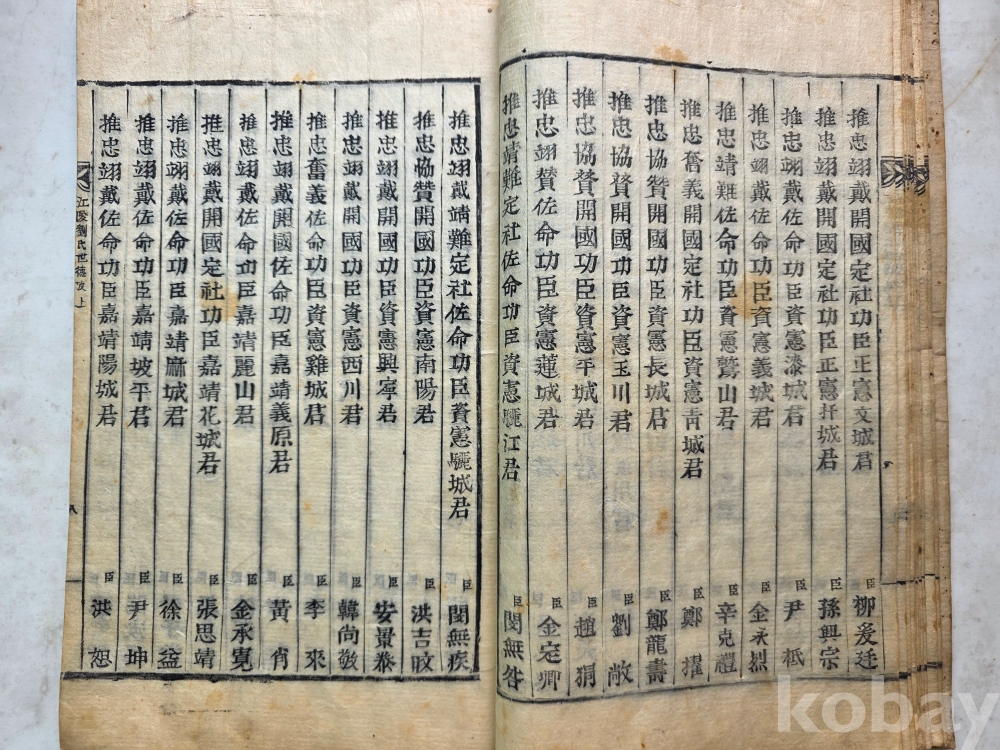 推忠翊戴開國定社功臣正憲文城君 臣 柳爰廷
推忠翊戴開國定社功臣正憲 城君 臣 孫興宗
推忠翊戴佐命功臣資憲漆城君 臣 尹柢
推忠翊戴佐命功臣資憲義城君 臣 金承烈
推忠靖難佐命功臣資憲鷲山君 臣 辛克禮
推忠奮義開國定社功臣資憲靑城君 臣 鄭擢
推忠協贊開國功臣資憲長城君 臣 鄭龍壽
推忠協賛開國功臣資憲玉川君 臣 劉敞
推忠協賛開國功臣資憲平城君 臣 趙狷
推忠翊賛佐命功臣資憲蓮城君 臣 金定卿
推忠靖難定社佐命功臣資憲驪江君 臣 閔無咎
推忠翊戴靖難定社佐命功臣資憲驪城君 臣 閔無疾
推忠協賛開國功臣資憲南陽君 臣 洪吉旼
推忠翊戴開國功臣資憲興寧君 臣 安景泰
推忠翊戴開國功臣資憲西川君 臣 韓尙敬
推忠奮義佐命功臣資憲雞城君 臣 李來
推忠翊戴開國佐命功臣嘉靖義原君 臣 黃
推忠翊戴佐命功臣嘉靖麗山君 臣 金承
推忠翊戴開國定社功臣嘉靖花城君 臣 張思靖
推忠翊戴佐命功臣嘉靖麻城君 臣 徐益
推忠翊戴佐命功臣嘉靖坡平君 臣 尹坤
推忠翊戴佐命功臣嘉靖陽城君 臣 洪恕
江陵劉氏世德攷上
八
kobay